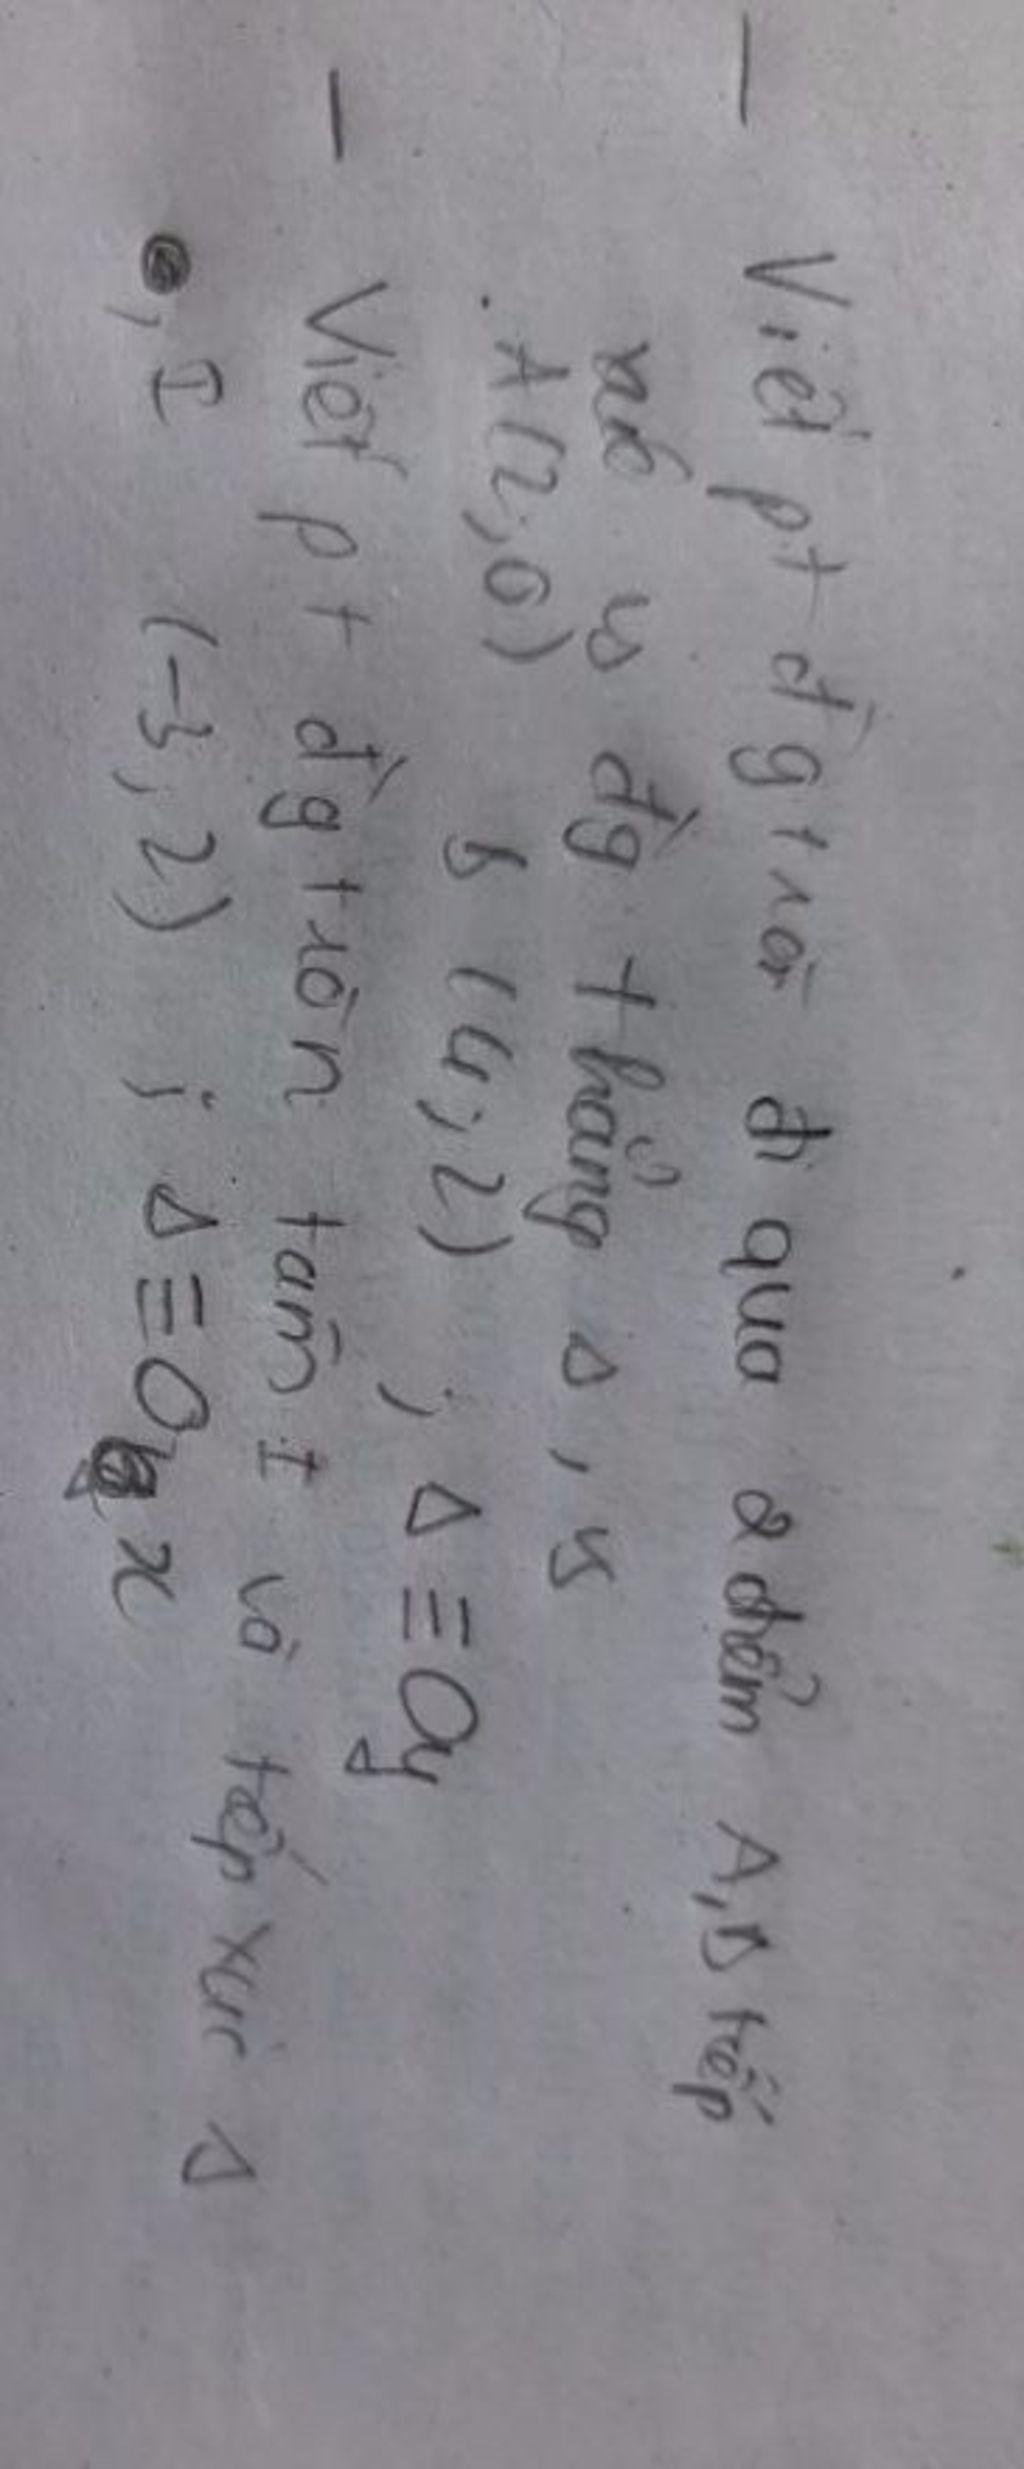 - Viết pt đg trò đi qua 2 điểm A, B tiếp
đg thẳng Δ, vs
. A(2, 0) B (4; 2) ; Δ ≡ Oy
- Viết pt đg tròn tâm I và tiếp xúc Δ
, I (-3, 2) ; Δ ≡ O x